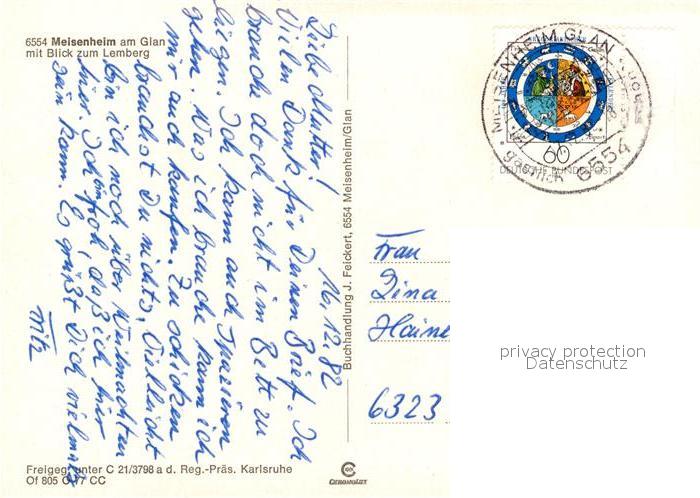 6554 Meisenheim am Glan
mit Blick zum Lemberg
16.12.82
Liebe Mutter!
Vielen Dank für Deinen Brief. Ich
brauche doch nicht im Bett zu
liegen. Ich kann auch spazieren
gehn. Was ich brauche kann ich
mir auch kaufen. Zu schicken
brauchst Du nichts. Vielleicht
bin ich noch über Weihnachten
hier. Ich bin froh, daß ich hier
sein kann. Es grüßt Dich vielmals
Fritz
Buchhandlung J. Feickert, 6554 Meisenheim/Glan
MEISENHEIM, GLAN
gastlich
6554
60
DEUTSCHE BUNDESPOST
Frau
Lina
Haine
6323
privacy protection
Datenschutz
Freigeg. unter C 21/3798 a d. Reg.-Präs. Karlsruhe
Of 805 CC